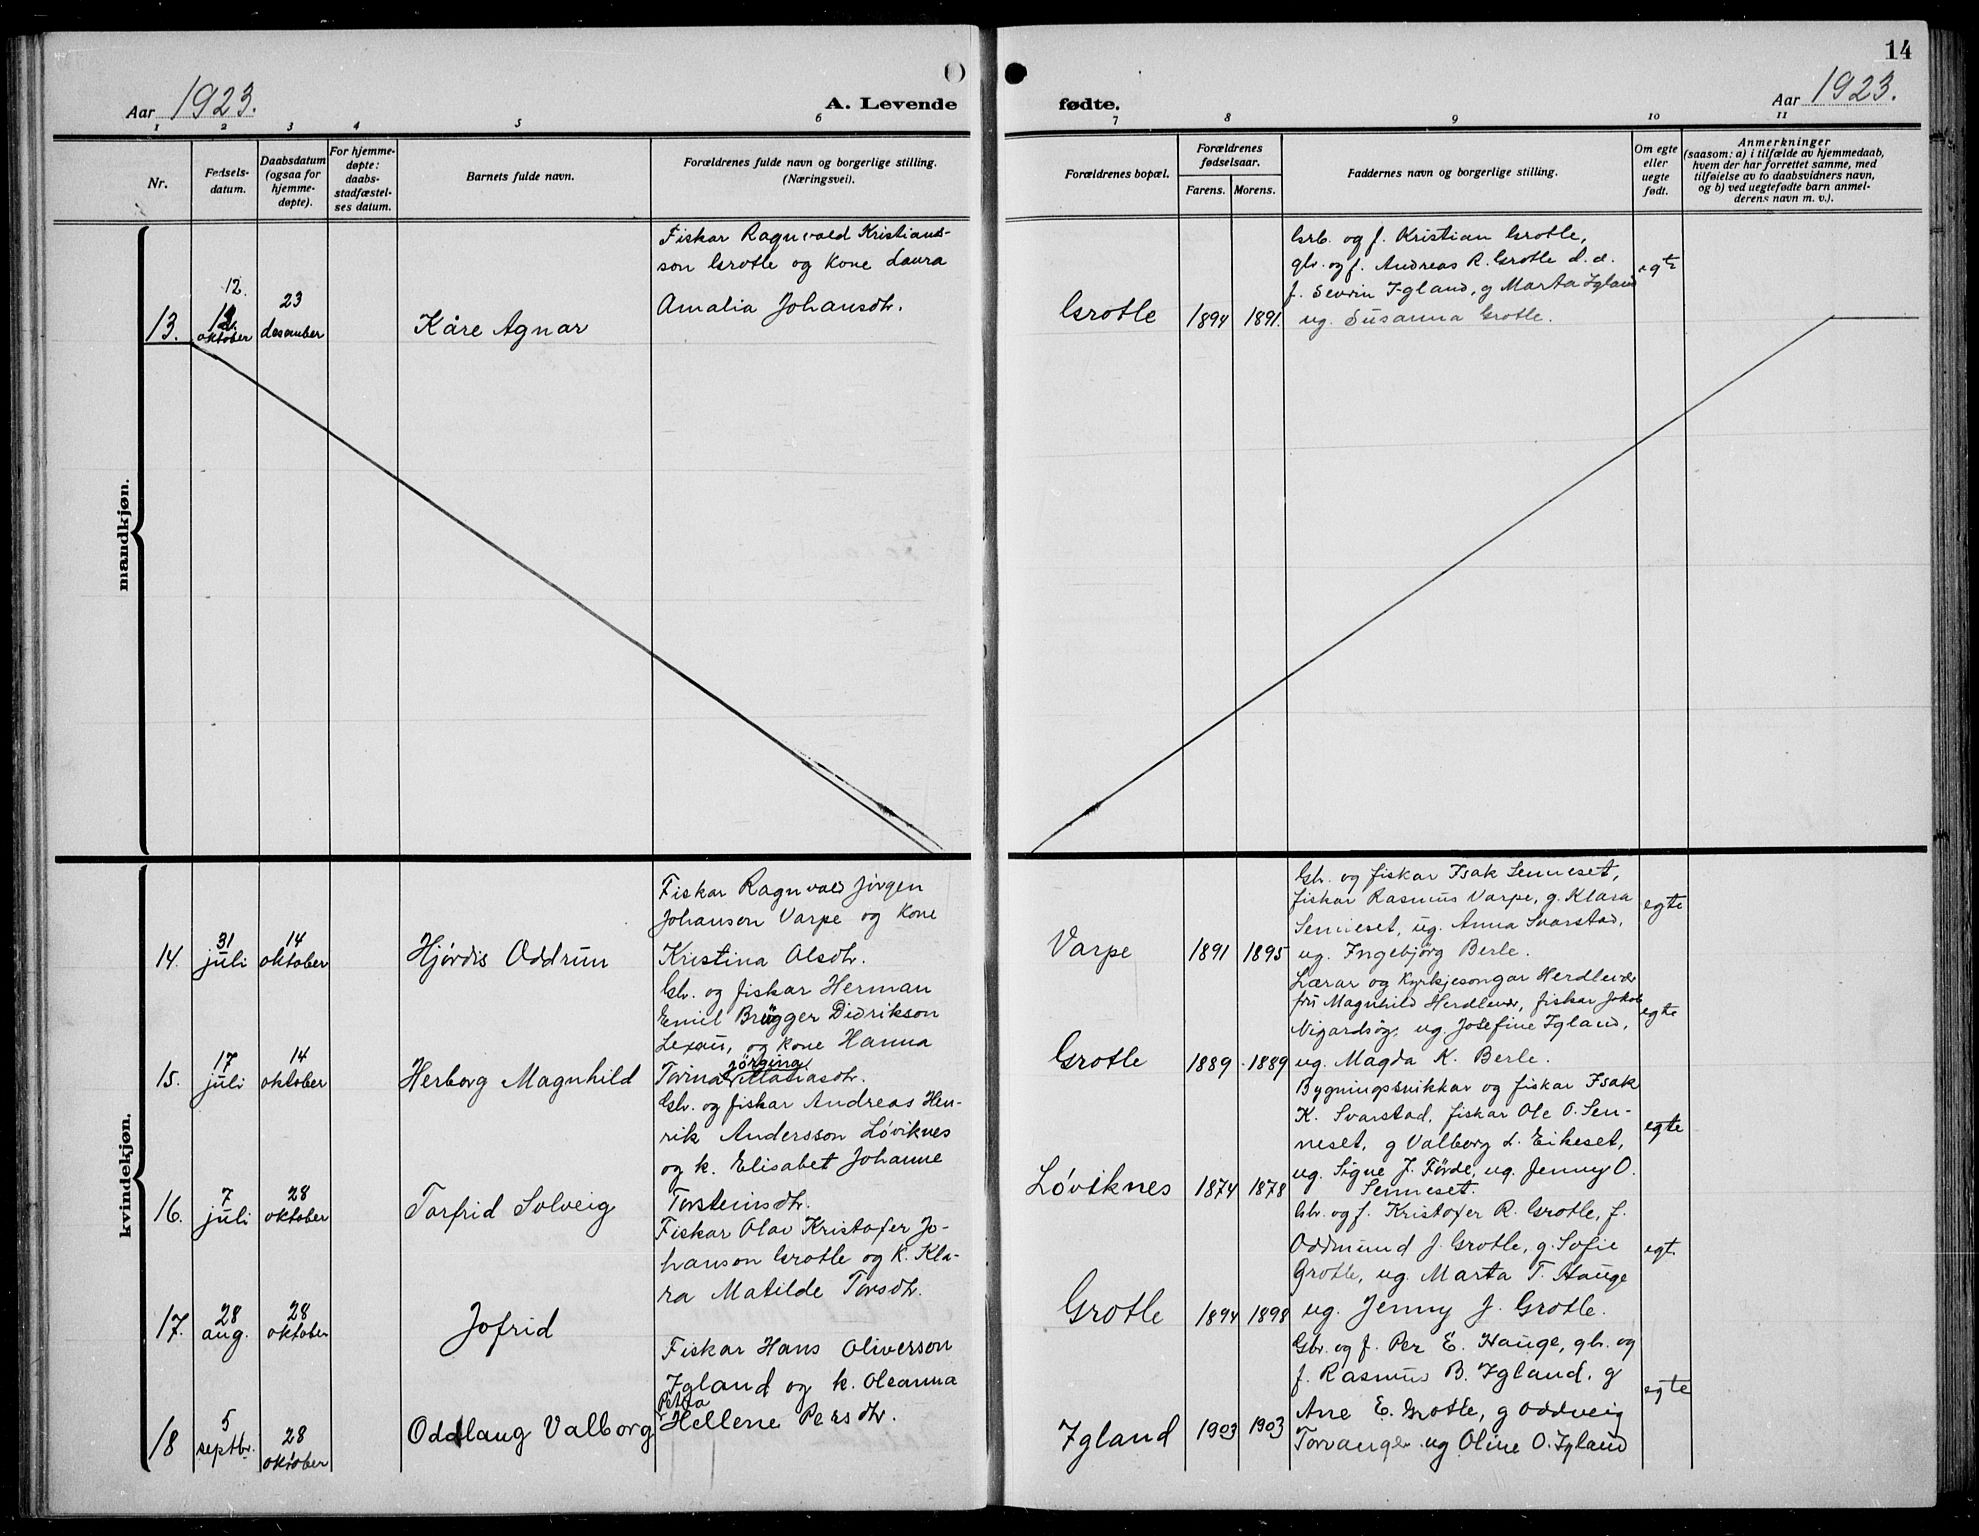 14
Aar 1923.
A. Levende
fødte.
Aar 1923.
1 2 3 4 5 6 7 8 9 10 11
Nr.
Fødsels-
datum.
Daabsdatum
(ogsaa for
hjemme-
døpte).
For hjemme-
døpte:
daabs-
stadfæstel-
ses datum.
Barnets fulde navn.
Forældrenes fulde navn og borgerlige stilling.
(Næringsvei).
Forældrenes bopæl.
Forældrenes
fødselsaar.
Farens. Morens.
Faddernes navn og borgerlige stilling.
Om egte
eller
uegte
født.
Anmerkninger
(saasom: a) i tilfælde av hjemmedaab,
hvem der har forrettet samme, med
tilføielse av to daabsvidners navn,
og b) ved uegtefødte barn anmel-
derens navn m. v.).
mandkjøn.
13.
12.
12.
oktober
23
desember
Kåre Agnar
Fiskar Ragnvald Kristian-
son Grotle og kone Laura
Amalia Johansdtr.
Grotle
1894
1891.
Grb. og f. Kristian Grotle,
gbr. og f. Andreas R. Grotle d. e.
f. Sevrin Igland, g Marta Igland
ug. Susanna Grotle.
egte
kvindekjøn.
14.
31
juli
14
oktober
Hjørdis Oddrun
Fiskar Ragnvald Jørgen
Johanson Varpe og kone
Kristina Olsdtr.
Varpe
1891
1895
Gbr. og fiskar Isak Senneset,
fiskar Rasmus Varpe, g. Klara
Senneset, ug. Anna Svarstad,
ug. Ingebjørg Berle.
egte
15.
17
juli
14
oktober
Herborg Magnhild
Gbr. og fiskar Herman
Emil Brügger Didrikson
Lexau, og kone Hanna
jörgina
Torina Matiasdtr.
Grotle
1889
1889
Lærar og kyrkjesongar Herdlevær
fru Magnhild Herdlevær, fiskar Jakob
Nigardsøy, ug. Josefine Igland,
ug. Magda K. Berle.
egte
16.
7
juli
28
oktober
Torfrid Solveig
Gbr. og fiskar Andreas Hen-
rik Andersson Løviknes
og k. Elisabet Johanne
Torsteinsdtr.
Løviknes
1874
1878
Bygningssnikkar og fiskar Isak
K. Svarstad, fiskar Ole O. Sen-
neset, g Valborg L. Eikeset,
ug. Signe J. Förde, ug. Jenny O.
Senneset.
egte
17.
28
aug.
28
oktober
Jofrid
Fiskar Olav Kristofer Jo-
hanson Grotle og k. Kla-
ra Matilde Torsdtr.
Grotle
1894
1898
Gbr. og f. Kristofer R. Grotle, f.
Oddmund J. Grotle, g. Sofie
Grotle, ug. Marta T. Hauge
ug. Jenny J. Grotle.
egt.
18
5
septbr.
28
oktober
Oddlaug Valborg
Fiskar Hans Oliverson
Igland og k. Oleanna
Petra
Hellene Persdtr.
Igland
1903
1903
Gbr. og f. Per E. Hauge, gbr. og
f. Rasmus B. Igland, g
Ane E. Grotle, g Oddveig
Torvanger ug Oline O. Igland
egte